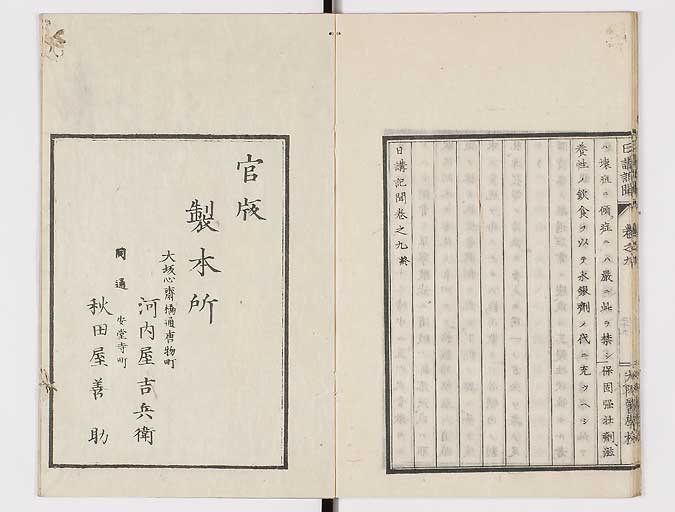 日講記聞
卷之九
ハ壊疽ニ傾症ニハ嚴ニ此ヲ禁シ保固强壮劑滋
養性ノ飲食ヲ以テ水銀劑ノ代ニ充ツヘシ
日講記聞卷之九終
官版
製本所
大坂心齋橋通唐物町
河内屋吉兵衞
同通安堂寺町
秋田屋善助